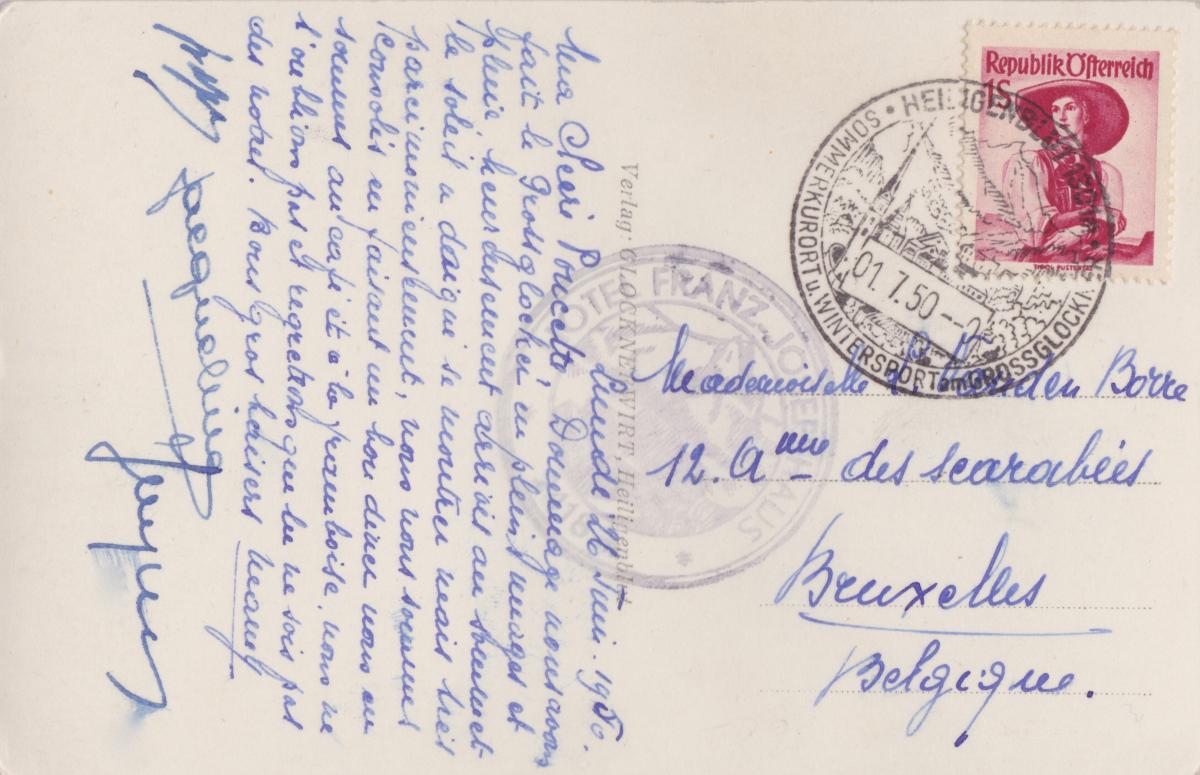 Lundi 26 Juin. 1950.
Ma Chérie Poucette, Dommage nous avons
fait le Grossglockner en pleins nuages et
pluie heureusement arrivés au sommet
le soleil a daigné se montrer mais très
parcimonieusement, nous nous sommes
consolés en faisant un bon diner nous en
sommes au café et à la framboise. nous ne
t'oublions pas et regrettons que tu ne sois pas
des notres. Bons gros baisers
Jacqueline
Verlag: GLOCKNERWIRT, Heiligenblut
HOTEL FRANZ-JOSEF-HAUS
Republik Österreich
1S
TIROL PUSTERTAL
HEILIGENBLUT 1301m
SOMMERKURORT u. WINTERSPORT am GROSSGLOCKN.
01.7.50
Mademoiselle Vanden Borre
12. Aᵐᵉ des scarabées
Bruxelles
Belgique.